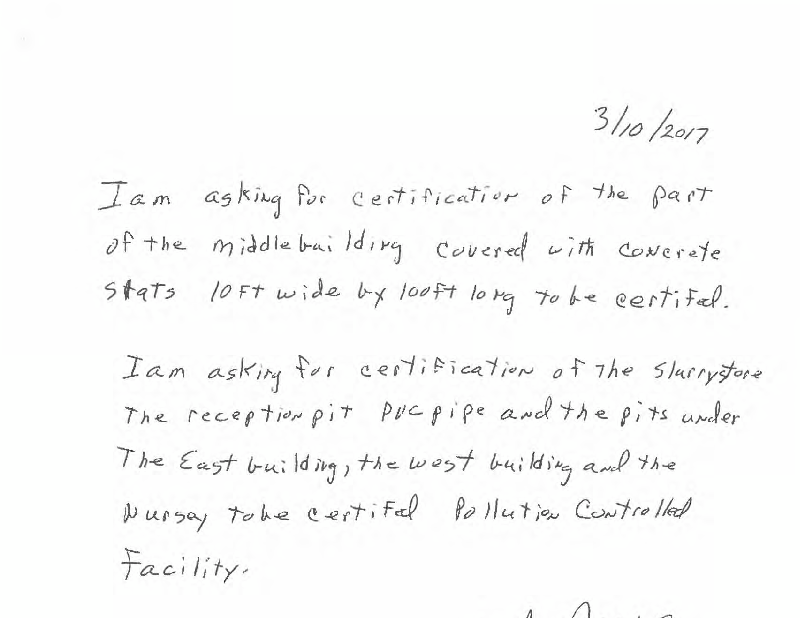 3/10/2017
I am asking for certification of the part
of the middle building covered with concrete
stats 10 FT wide by 100 ft long to be certifed.
I am asking for certification of the Slurrystore
The reception pit PVC pipe and the pits under
The East building, the west building and the
Nursay to be certifed Pollution Controlled
Facility.